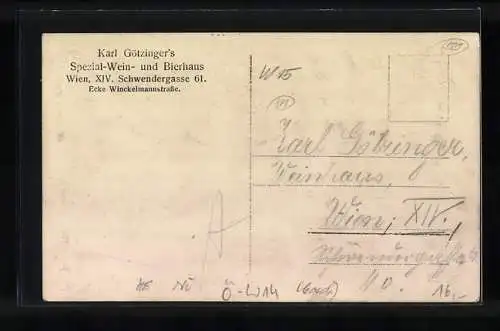 Karl Götzinger's
Spezial-Wein- und Bierhaus
Wien, XIV. Schwendergasse 61.
Ecke Winckelmannstraße.
W15
Karl Götzinger,
Weinhaus,
Wien, XIV.
Schwendergasse
Ö-W14
16,-